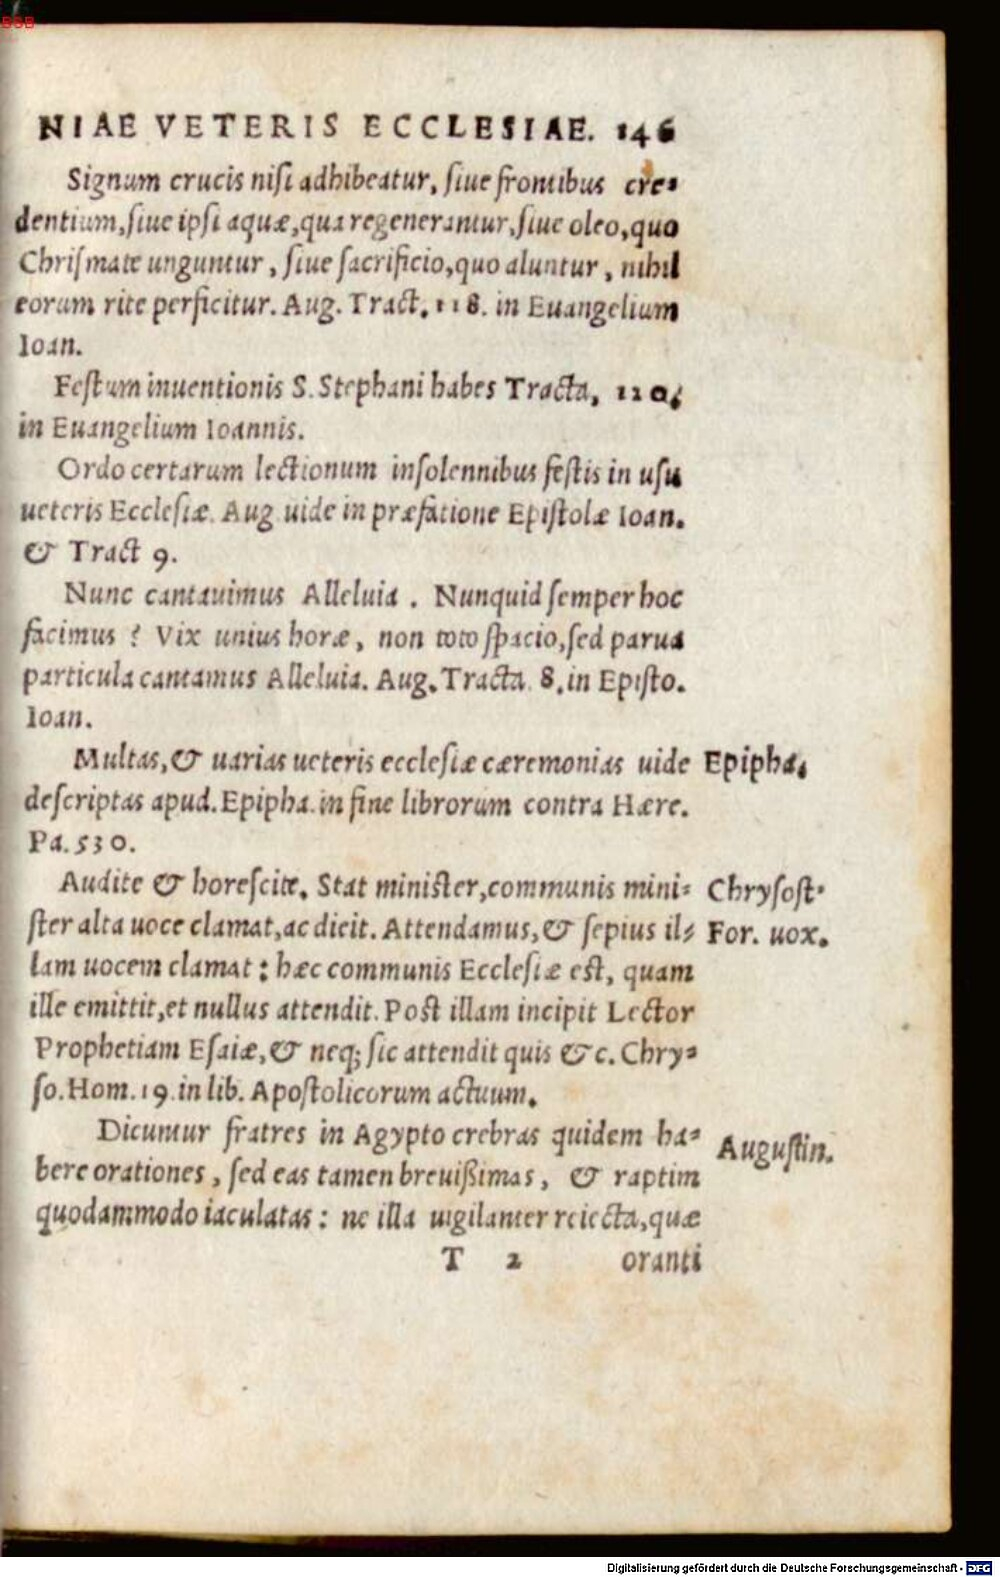 BSB
NIAE VETERIS ECCLESIAE. 146
Signum crucis nisi adhibeatur, siue frontibus cre-
dentium, siue ipsi aquæ, qua regenerantur, siue oleo, quo
Chrismate unguntur, siue sacrificio, quo aluntur, nihil
eorum rite perficitur. Aug. Tract. 118. in Euangelium
Ioan.
Festum inuentionis S. Stephani habes Tracta. 120.
in Euangelium Ioannis.
Ordo certarum lectionum in solennibus festis in usu
ueteris Ecclesiæ. Aug uide in præfatione Epistolæ Ioan.
& Tract 9.
Nunc cantauimus Alleluia. Nunquid semper hoc
facimus? Vix unius horæ, non toto spacio, sed parua
particula cantamus Alleluia. Aug. Tracta. 8. in Episto.
Ioan.
Multas, & uarias ueteris ecclesiæ cæremonias uide Epipha.
descriptas apud. Epipha. in fine librorum contra Hære.
Pa. 530.
Audite & horescite. Stat minister, communis mini- Chrysost.
ster alta uoce clamat, ac dicit. Attendamus, & sepius il- For. uox.
lam uocem clamat: hæc communis Ecclesiæ est, quam
ille emittit, et nullus attendit. Post illam incipit Lector
Prophetiam Esaiæ, & neq; sic attendit quis &c. Chry-
so. Hom. 19. in lib. Apostolicorum actuum.
Dicuntur fratres in Agypto crebras quidem ha- Augustin.
bere orationes, sed eas tamen breuißimas, & raptim
quodammodo iaculatas: ne illa uigilanter reiecta, quæ
T 2 oranti
Digitalisierung gefördert durch die Deutsche Forschungsgemeinschaft - DFG